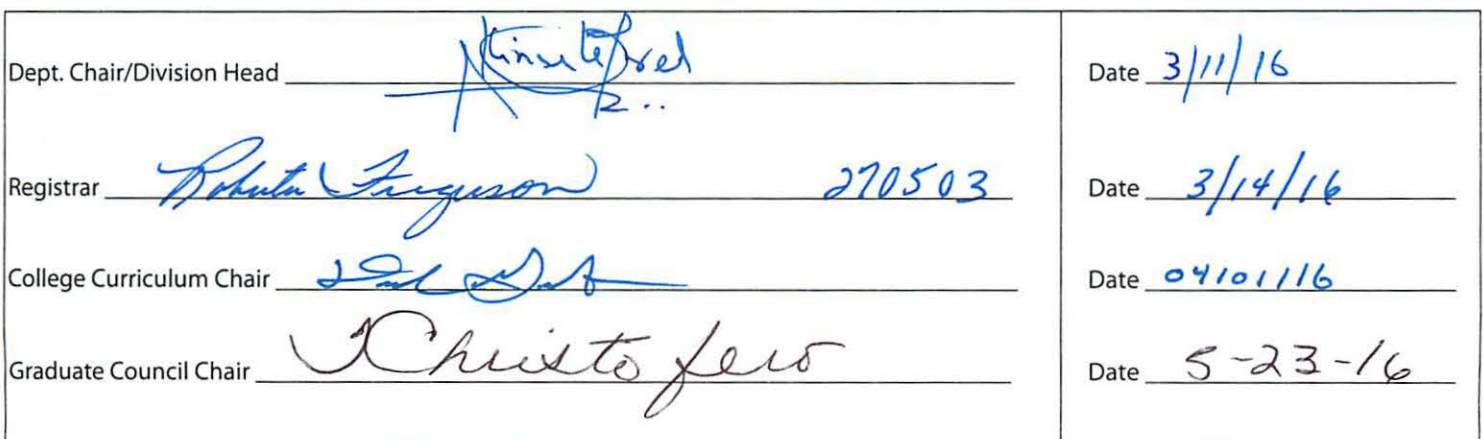 Dept. Chair/Division Head Date 3/11/16
Registrar Roberta Ferguson 270503 Date 3/14/16
College Curriculum Chair Date 04/01/16
Graduate Council Chair Christofero Date 5-23-16